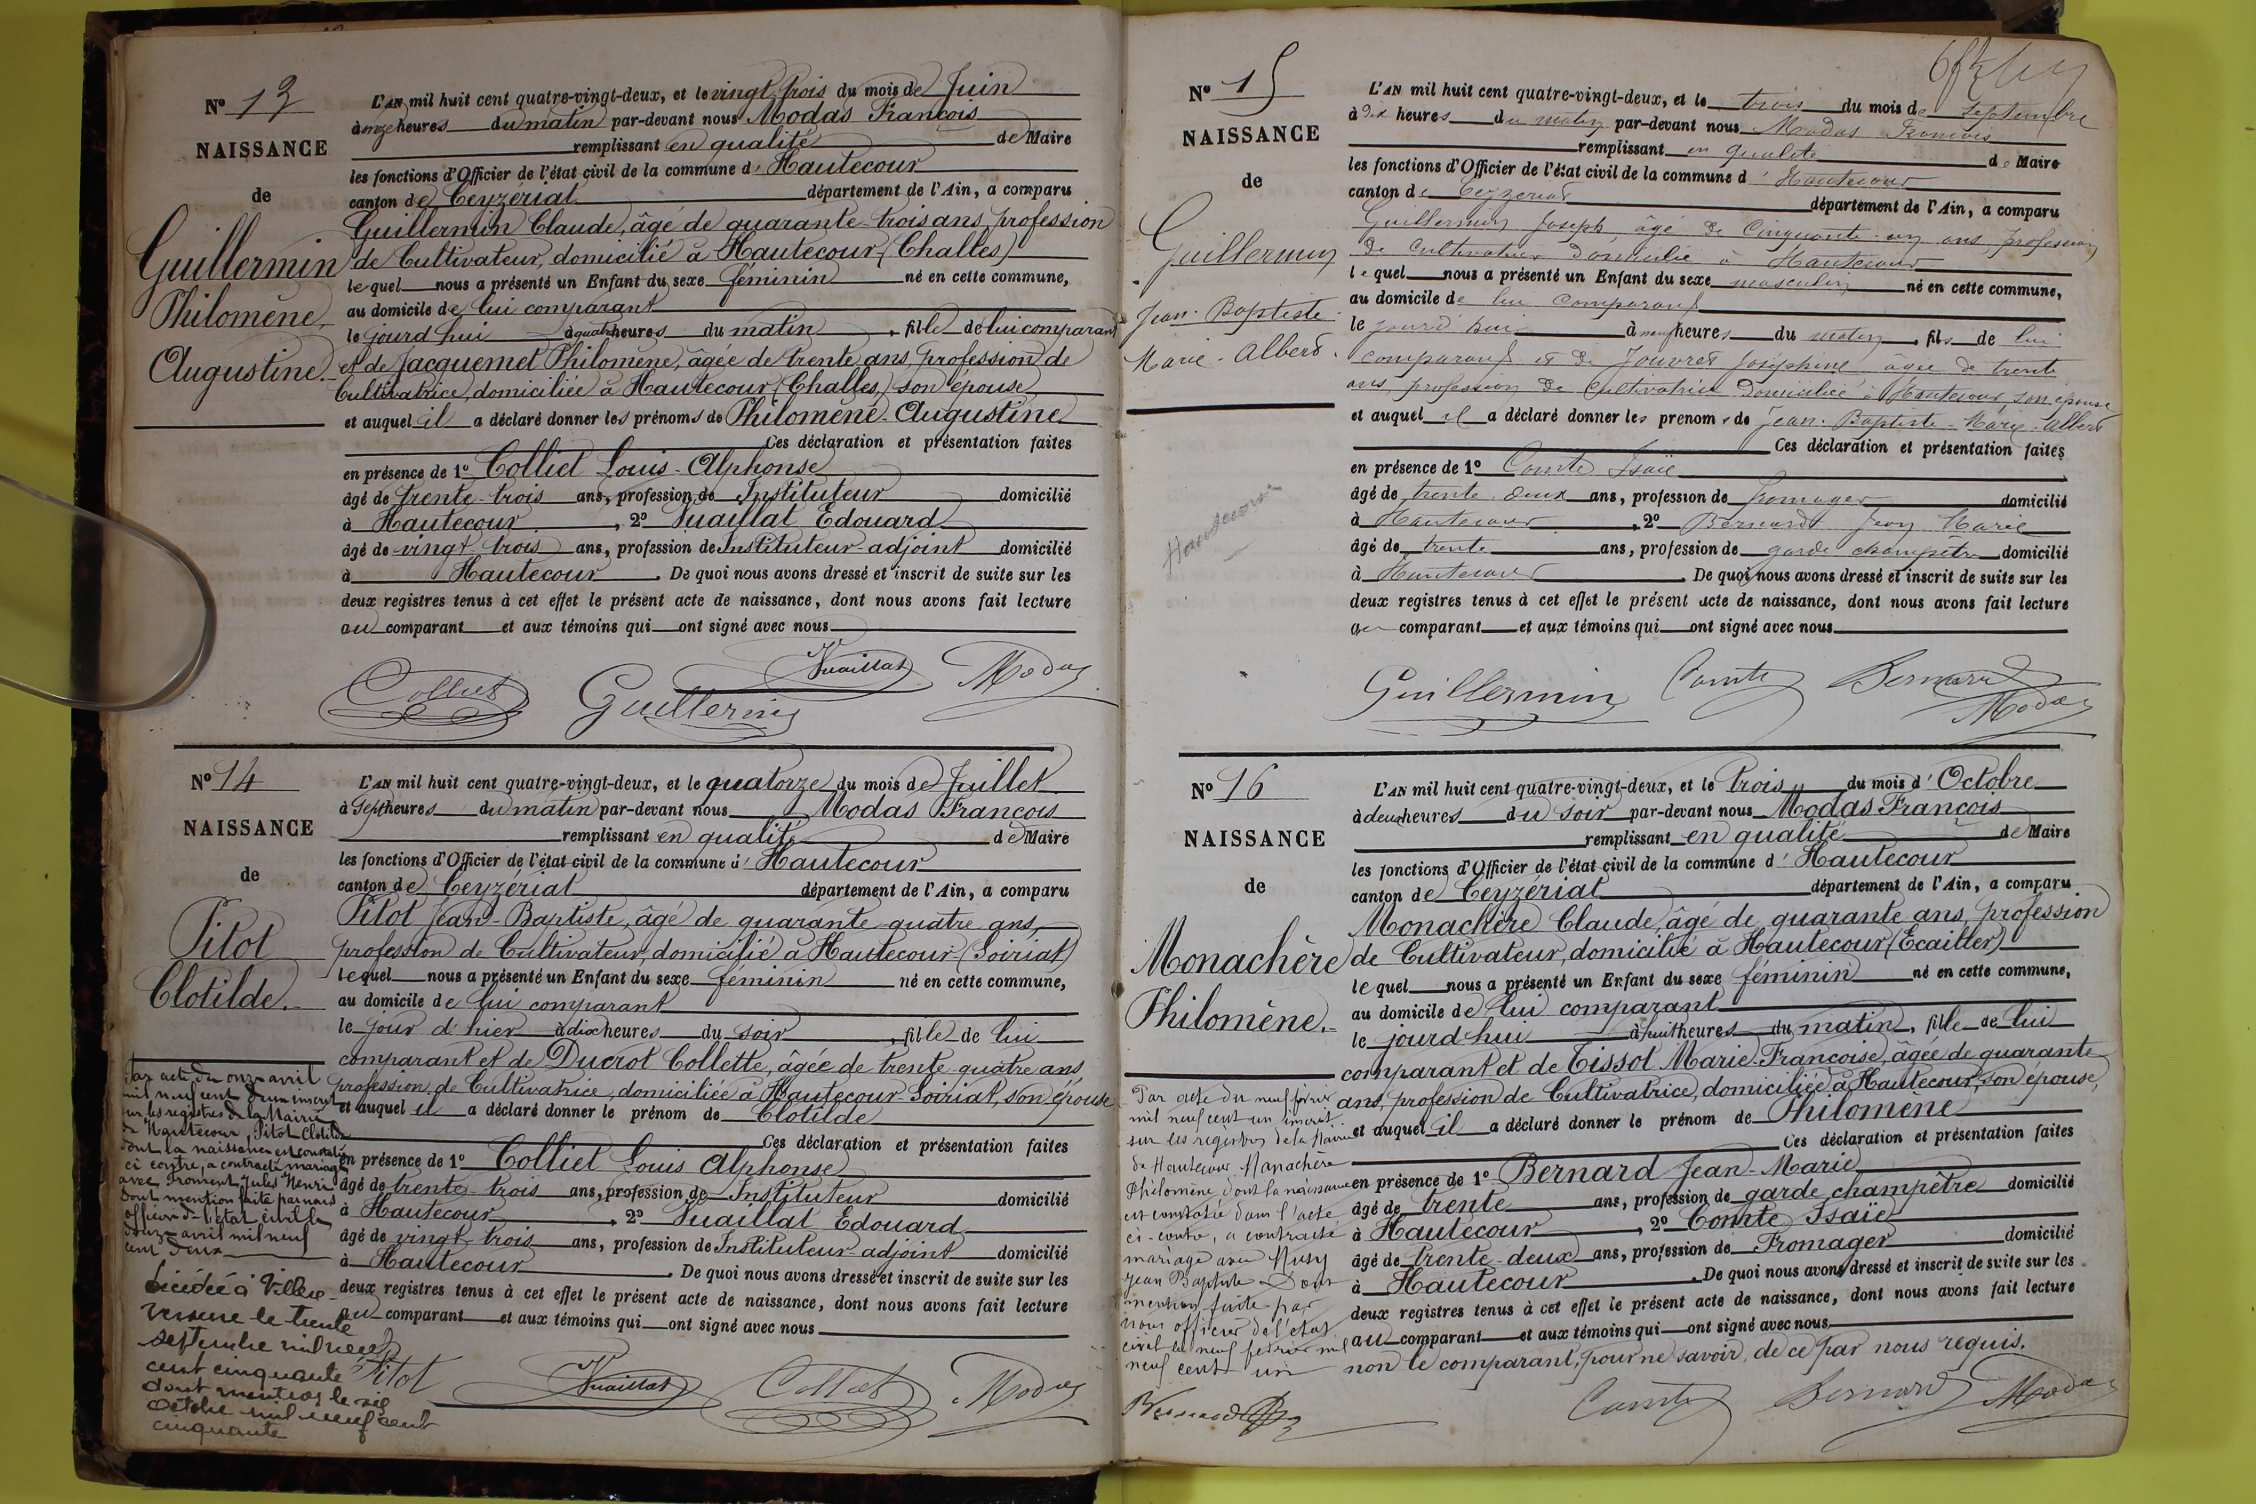 N° 13
NAISSANCE
de
Guillermin
Philomène
Augustine.
L'AN mil huit cent quatre-vingt-deux, et le vingt trois du mois de Juin
à onze heures du matin par-devant nous Modas François
remplissant en qualité de Maire
les fonctions d'Officier de l'état civil de la commune d' Hautecour
canton de Ceyzériat département de l'Ain, a comparu
Guillermin Claude, âgé de quarante-trois ans, profession
de Cultivateur, domicilié à Hautecour (Challes)
lequel nous a présenté un Enfant du sexe féminin né en cette commune,
au domicile de lui comparant
le jourd'hui à quatre heures du matin, fille de lui comparant
et de Jacquemet Philomène, âgée de trente ans, profession de
Cultivatrice, domiciliée à Hautecour (Challes), son épouse
et auquel il a déclaré donner les prénoms de Philomène-Augustine
Ces déclaration et présentation faites
en présence de 1° Colliet Louis-Alphonse
âgé de trente-trois ans, profession de Instituteur domicilié
à Hautecour, 2° Vuaillat Edouard
âgé de vingt-trois ans, profession de Instituteur-adjoint domicilié
à Hautecour. De quoi nous avons dressé et inscrit de suite sur les
deux registres tenus à cet effet le présent acte de naissance, dont nous avons fait lecture
au comparant et aux témoins qui ont signé avec nous
Colliet Guillermin Vuaillat Modas
N° 14
NAISSANCE
de
Pitot
Clotilde.
Par acte du onze avril
mil neuf cent deux inscrit
sur les registres de la Mairie
de Hautecour, Pitot Clotilde
dont la naissance est constatée
ci contre, a contracté mariage
avec Froment Jules Henri
Dont mention faite par nous
officier de l'état civil le
douze avril mil neuf
cent deux
Décédée à Villere-
versure le trente
septembre mil neuf
cent cinquante
dont mention le six
octobre mil neuf cent
cinquante
L'AN mil huit cent quatre-vingt-deux, et le quatorze du mois de Juillet
à sept heures du matin par-devant nous Modas François
remplissant en qualité de Maire
les fonctions d'Officier de l'état civil de la commune d' Hautecour
canton de Ceyzériat département de l'Ain, a comparu
Pitot Jean-Baptiste, âgé de quarante quatre ans,
profession de Cultivateur, domicilié à Hautecour (Soiriat)
lequel nous a présenté un Enfant du sexe féminin né en cette commune,
au domicile de lui comparant
le jour d'hier à dix heures du soir, fille de lui
comparant et de Ducrot Collette, âgée de trente-quatre ans
profession de Cultivatrice, domiciliée à Hautecour-Soiriat, son épouse
et auquel il a déclaré donner le prénom de Clotilde
Ces déclaration et présentation faites
en présence de 1° Colliet Louis Alphonse
âgé de trente-trois ans, profession de Instituteur domicilié
à Hautecour, 2° Vuaillat Edouard
âgé de vingt-trois ans, profession de Instituteur adjoint domicilié
à Hautecour. De quoi nous avons dressé et inscrit de suite sur les
deux registres tenus à cet effet le présent acte de naissance, dont nous avons fait lecture
au comparant et aux témoins qui ont signé avec nous
Pitot Vuaillat Colliet Modas
N° 15
NAISSANCE
de
Guillermin
Jean-Baptiste
Marie-Albert.
L'AN mil huit cent quatre-vingt-deux, et le trois du mois de septembre
à Dix heures du matin par-devant nous Modas François
remplissant en qualité de Maire
les fonctions d'Officier de l'état civil de la commune d' Hautecour
canton de Ceyzeriat département de l'Ain, a comparu
Guillermin Joseph âgé de Cinquante-un ans, profession
de Cultivateur Domicilié à Hautecour
lequel nous a présenté un Enfant du sexe masculin né en cette commune,
au domicile de lui comparant
le jourd'hui à neuf heures du matin, fils de lui
comparant et de Jouvret Joséphine âgée de trente
ans, profession de Cultivatrice Domiciliée à Hautecour, son épouse
et auquel il a déclaré donner les prenoms de Jean-Baptiste-Marie-Albert
Ces déclaration et présentation faites
en présence de 1° Comte Isaïe
âgé de trente-deux ans, profession de fromager domicilié
à Hautecour, 2° Bernard Jean Marie
âgé de trente ans, profession de garde champêtre domicilié
à Hautecour. De quoi nous avons dressé et inscrit de suite sur les
deux registres tenus à cet effet le présent acte de naissance, dont nous avons fait lecture
au comparant et aux témoins qui ont signé avec nous
Guillermin Comte Bernard Modas
N° 16
NAISSANCE
de
Monachère
Philomène.
Par acte du neuf février
mil neuf cent un inscrit
sur les registres de la Mairie
de Hautecour Monachère
Philomène dont la naissance
est constatée dans l'acte
ci-contre, a contracté
mariage avec Musy
Jean Baptiste Dont
mention faite par
nous officier de l'état
civil le neuf février mil
neuf cent un
L'AN mil huit cent quatre-vingt-deux, et le trois du mois d' Octobre
à deux heures du soir par-devant nous Modas François
remplissant en qualité de Maire
les fonctions d'Officier de l'état civil de la commune d' Hautecour
canton de Ceyzériat département de l'Ain, a comparu
Monachère Claude, âgé de quarante ans, profession
de Cultivateur, domicilié à Hautecour (Ecailler)
lequel nous a présenté un Enfant du sexe féminin né en cette commune,
au domicile de lui comparant
le jourd'hui à huit heures du matin, fille de lui
comparant et de Tissot Marie-Françoise, âgée de quarante
ans, profession de Cultivatrice, domiciliée à Hautecour, son épouse,
et auquel il a déclaré donner le prénom de Philomène
Ces déclaration et présentation faites
en présence de 1° Bernard Jean-Marie
âgé de trente ans, profession de garde champêtre domicilié
à Hautecour, 2° Comte Isaïe
âgé de trente-deux ans, profession de Fromager domicilié
à Hautecour. De quoi nous avons dressé et inscrit de suite sur les
deux registres tenus à cet effet le présent acte de naissance, dont nous avons fait lecture
au comparant et aux témoins qui ont signé avec nous
non le comparant, pour ne savoir, de ce par nous requis.
Comte Bernard Modas